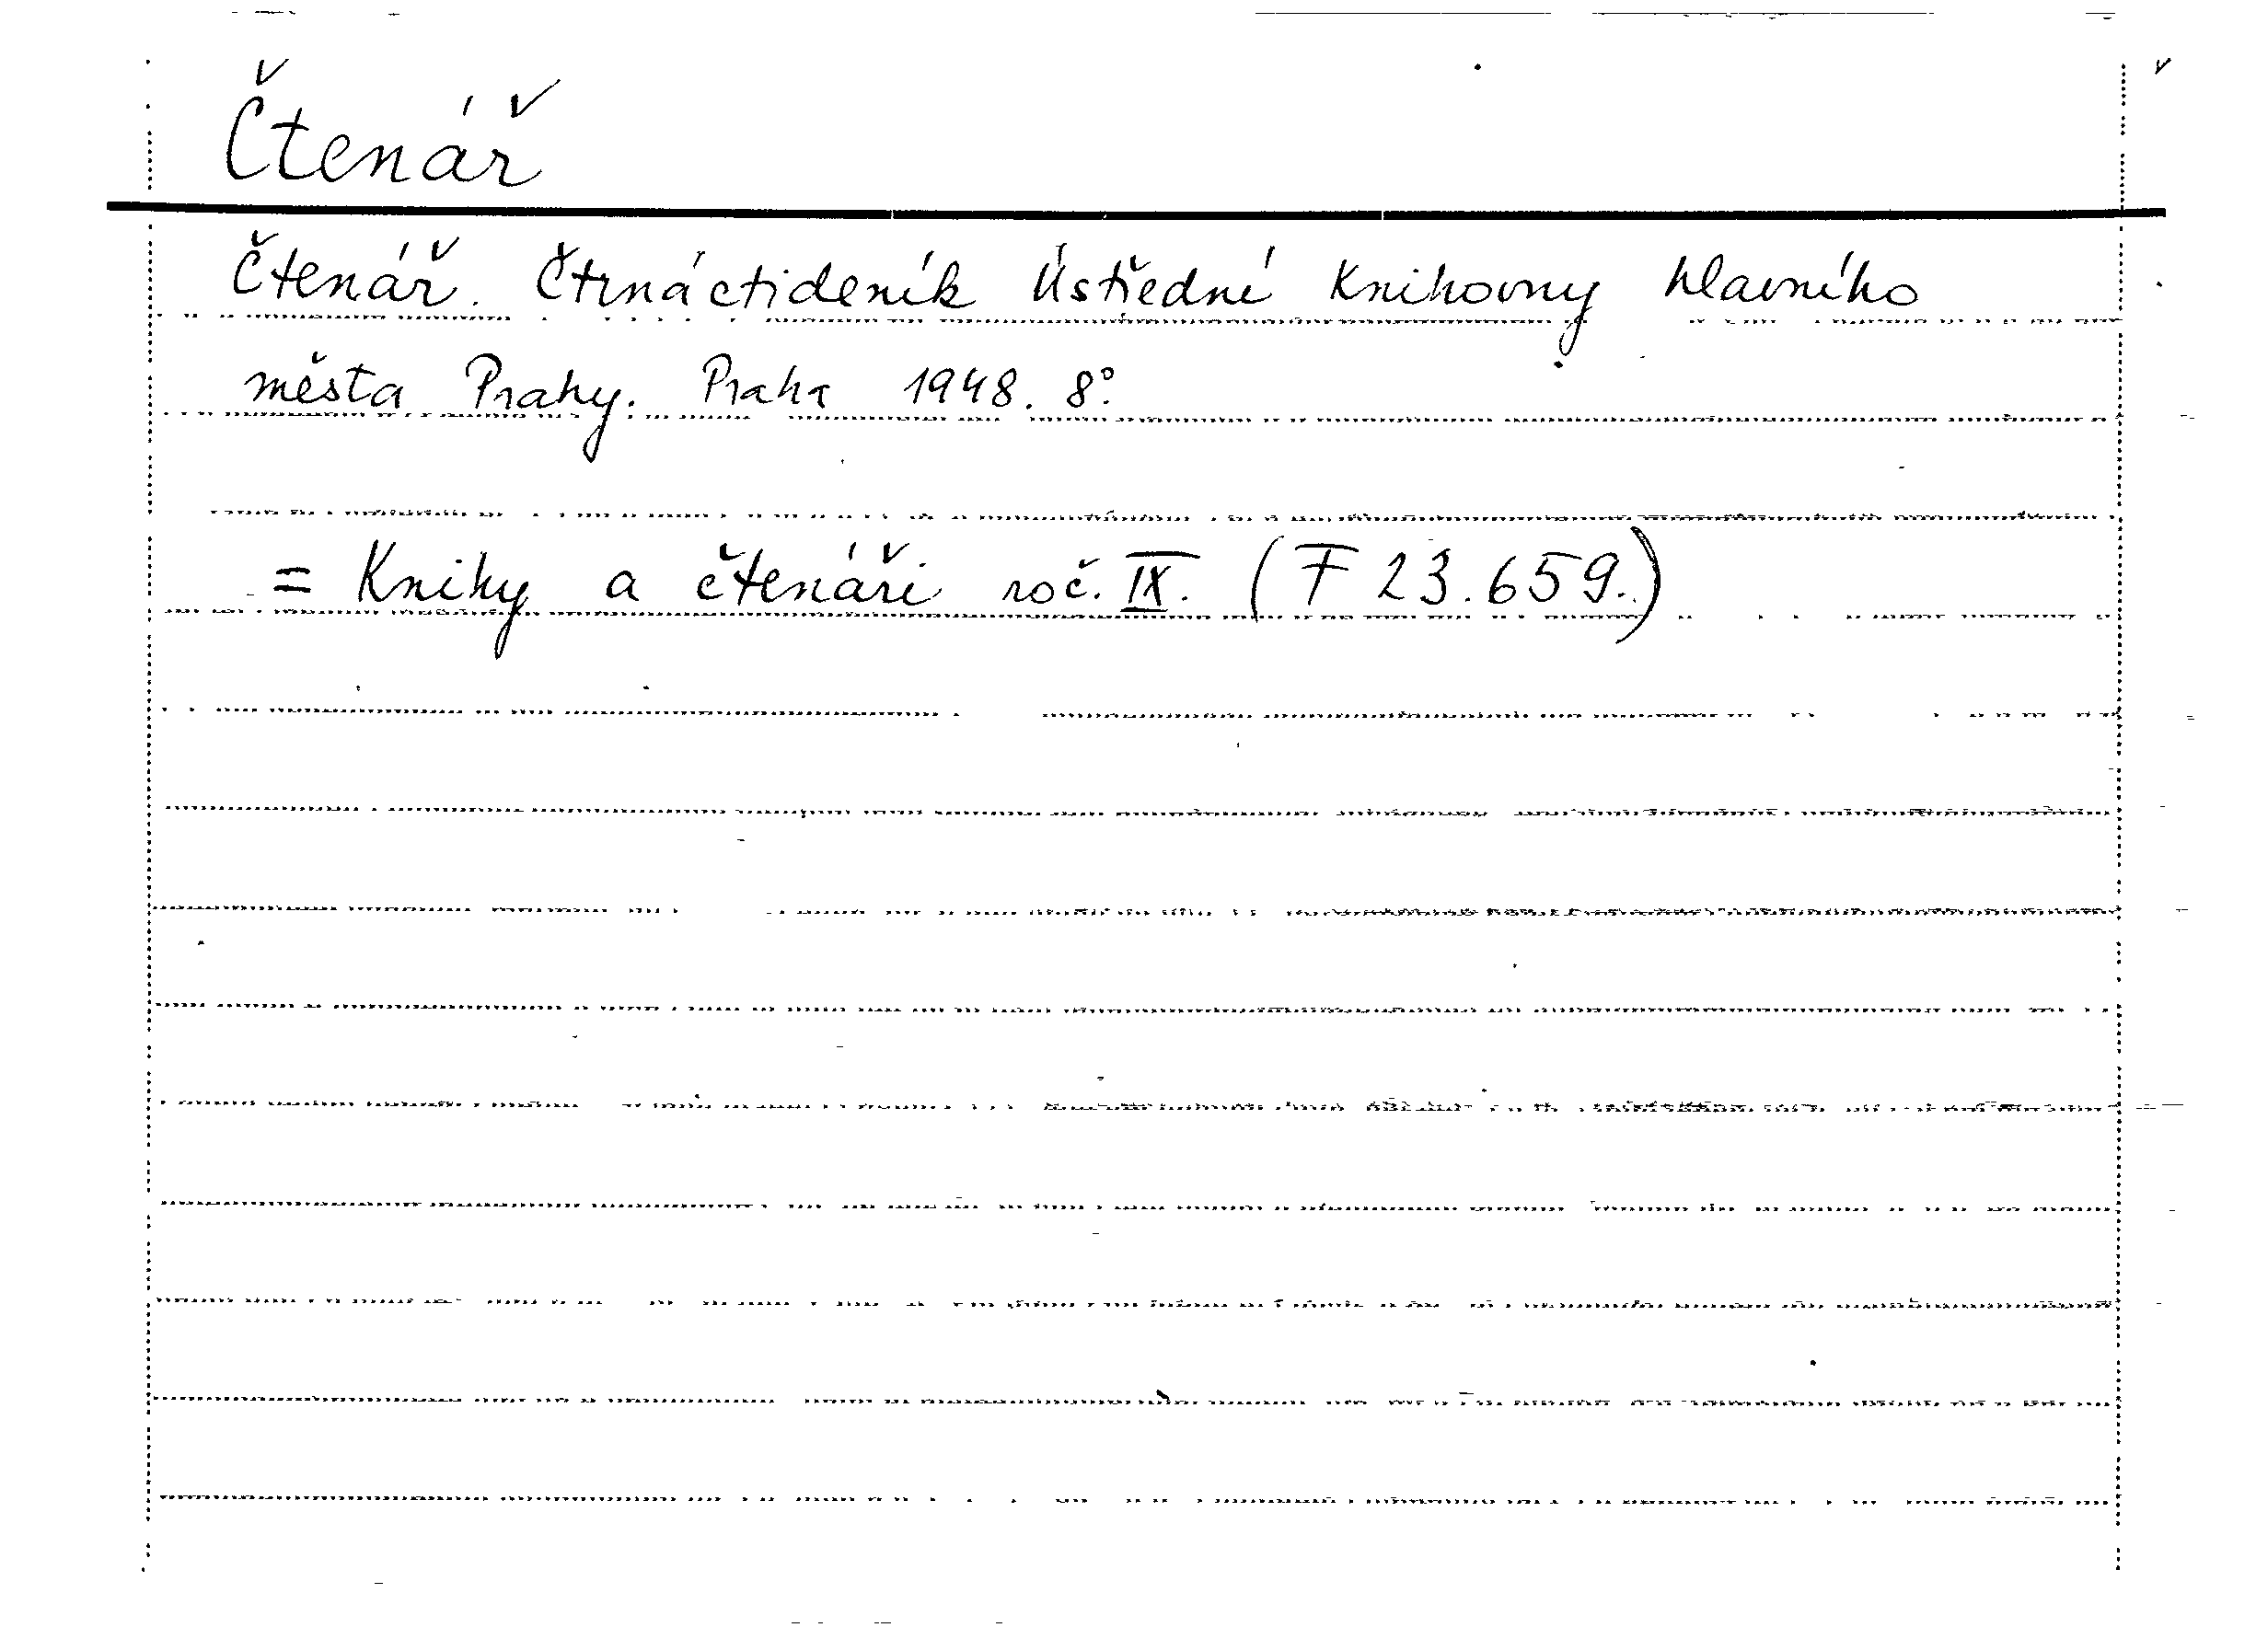 Čtenář
Čtenář. Čtrnáctideník Ústřední Knihovny hlavního
města Prahy. Praha 1948. 8°.
= Knihy a čtenáři roč. IX. (F 23.659.)